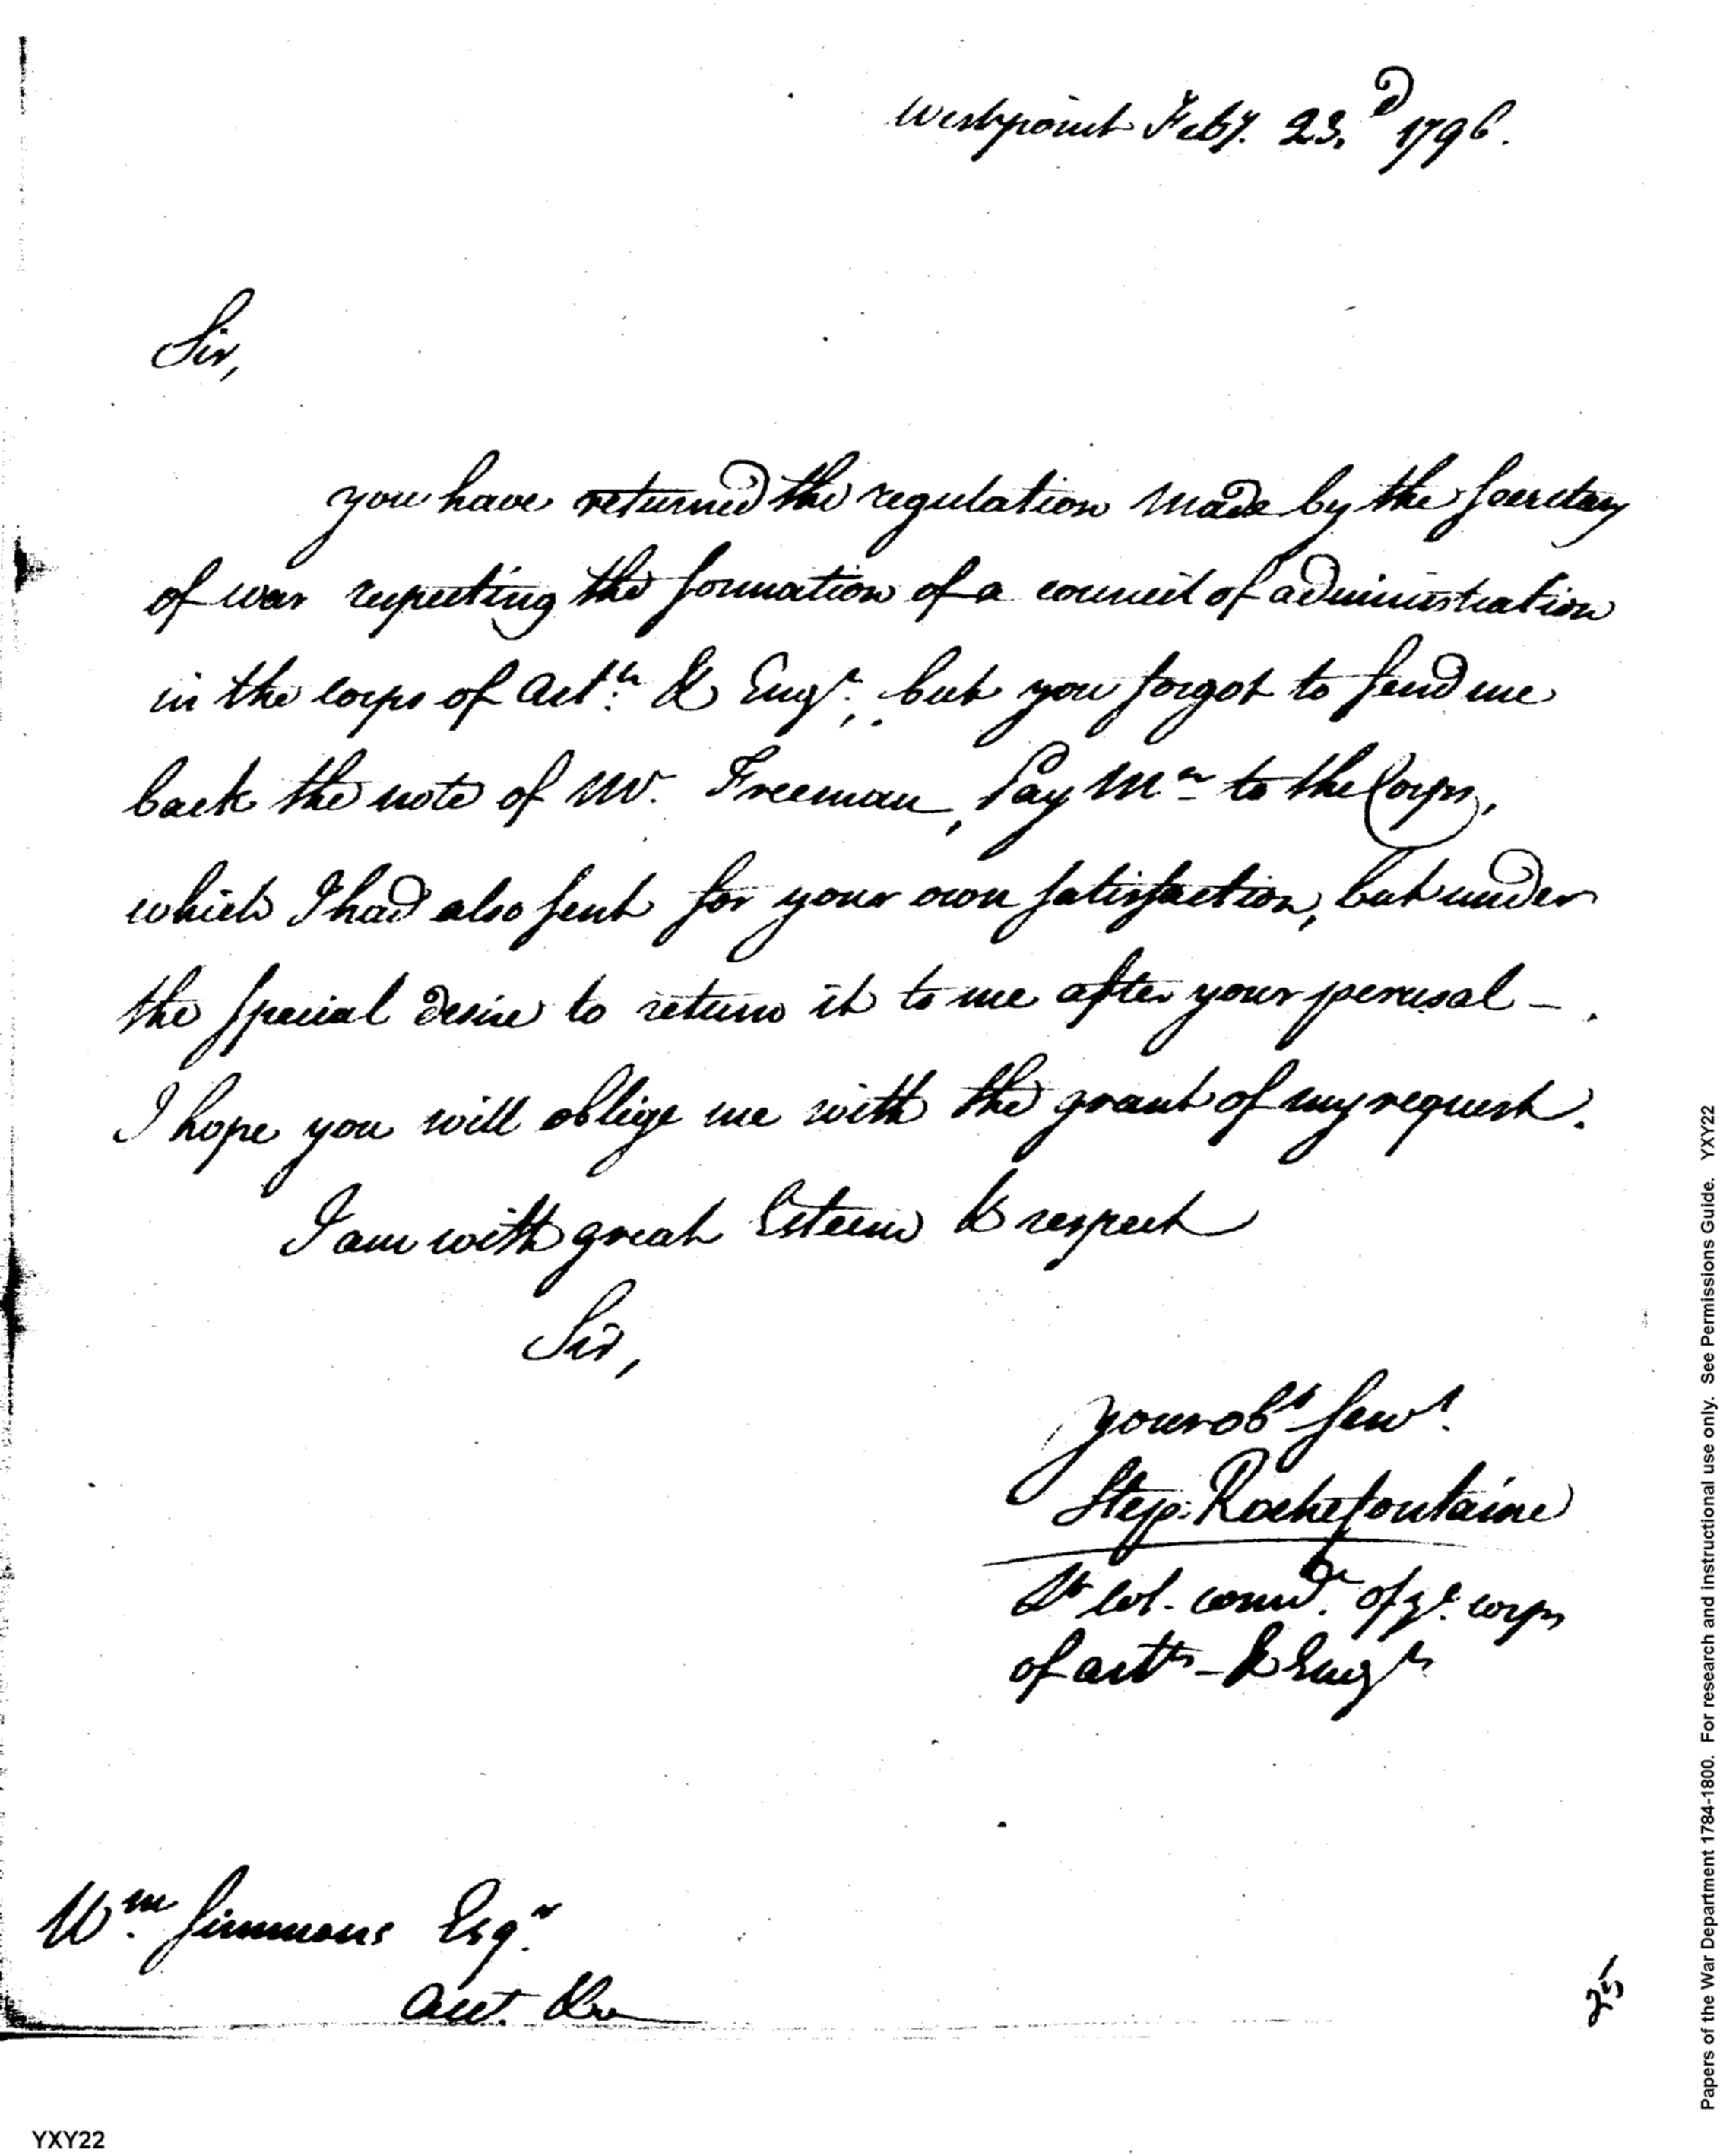 Westpoint Feby. 23.d 1796.
Sir,
you have returned the regulation made by the Secretary
of war respecting the formation of a council of administration
in the corps of Art.rs & Engr., but you forgot to send me
back the note of Mr. Freeman, Pay Mr to the Corps,
which I had also sent for your own satisfaction, but under
the special desire to return it to me after your perusal –.
I hope you will oblige me with the grant of my request.
I am with great Esteem & respect
Sir,
your obt Servt.
Step. Rochefontaine
Lt Col. comdr. of ye. corps
of artrs – & Engrs
Wm. Simmons Esqr.
Acct. &c
25
YXY22
Papers of the War Department 1784-1800. For research and instructional use only. See Permissions Guide. YXY22